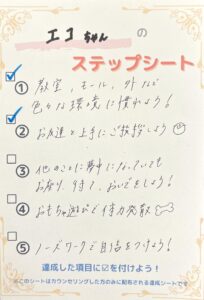 エコちゃんの
ステップシート
① 教室、モール、外など
色々な環境に慣れよう！
② お友達と上手にご挨拶しよう
③ 他のことに夢中になっていても
お座り、待て、おいでをしよう！
④ おもちゃ遊びで体力発散
⑤ ノーズワークで自信をつけよう！
達成した項目に☑を付けよう！
※このシートはカウンセリングした方のみに配布される達成シートです